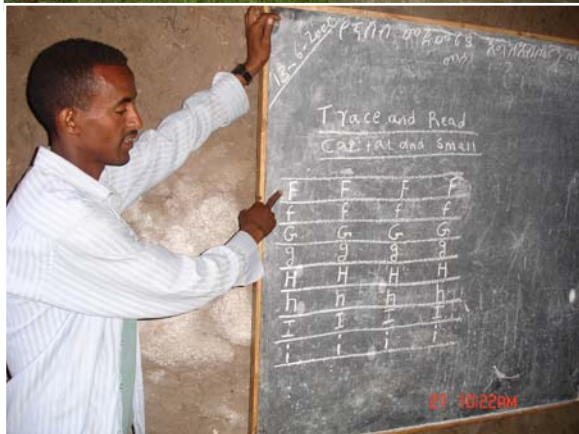 Trace and Read
Capital and Small
F F F F
f f f f
G G G G
g g g g
H H H H
h h h h
I I I I
i i i i
10:22PM